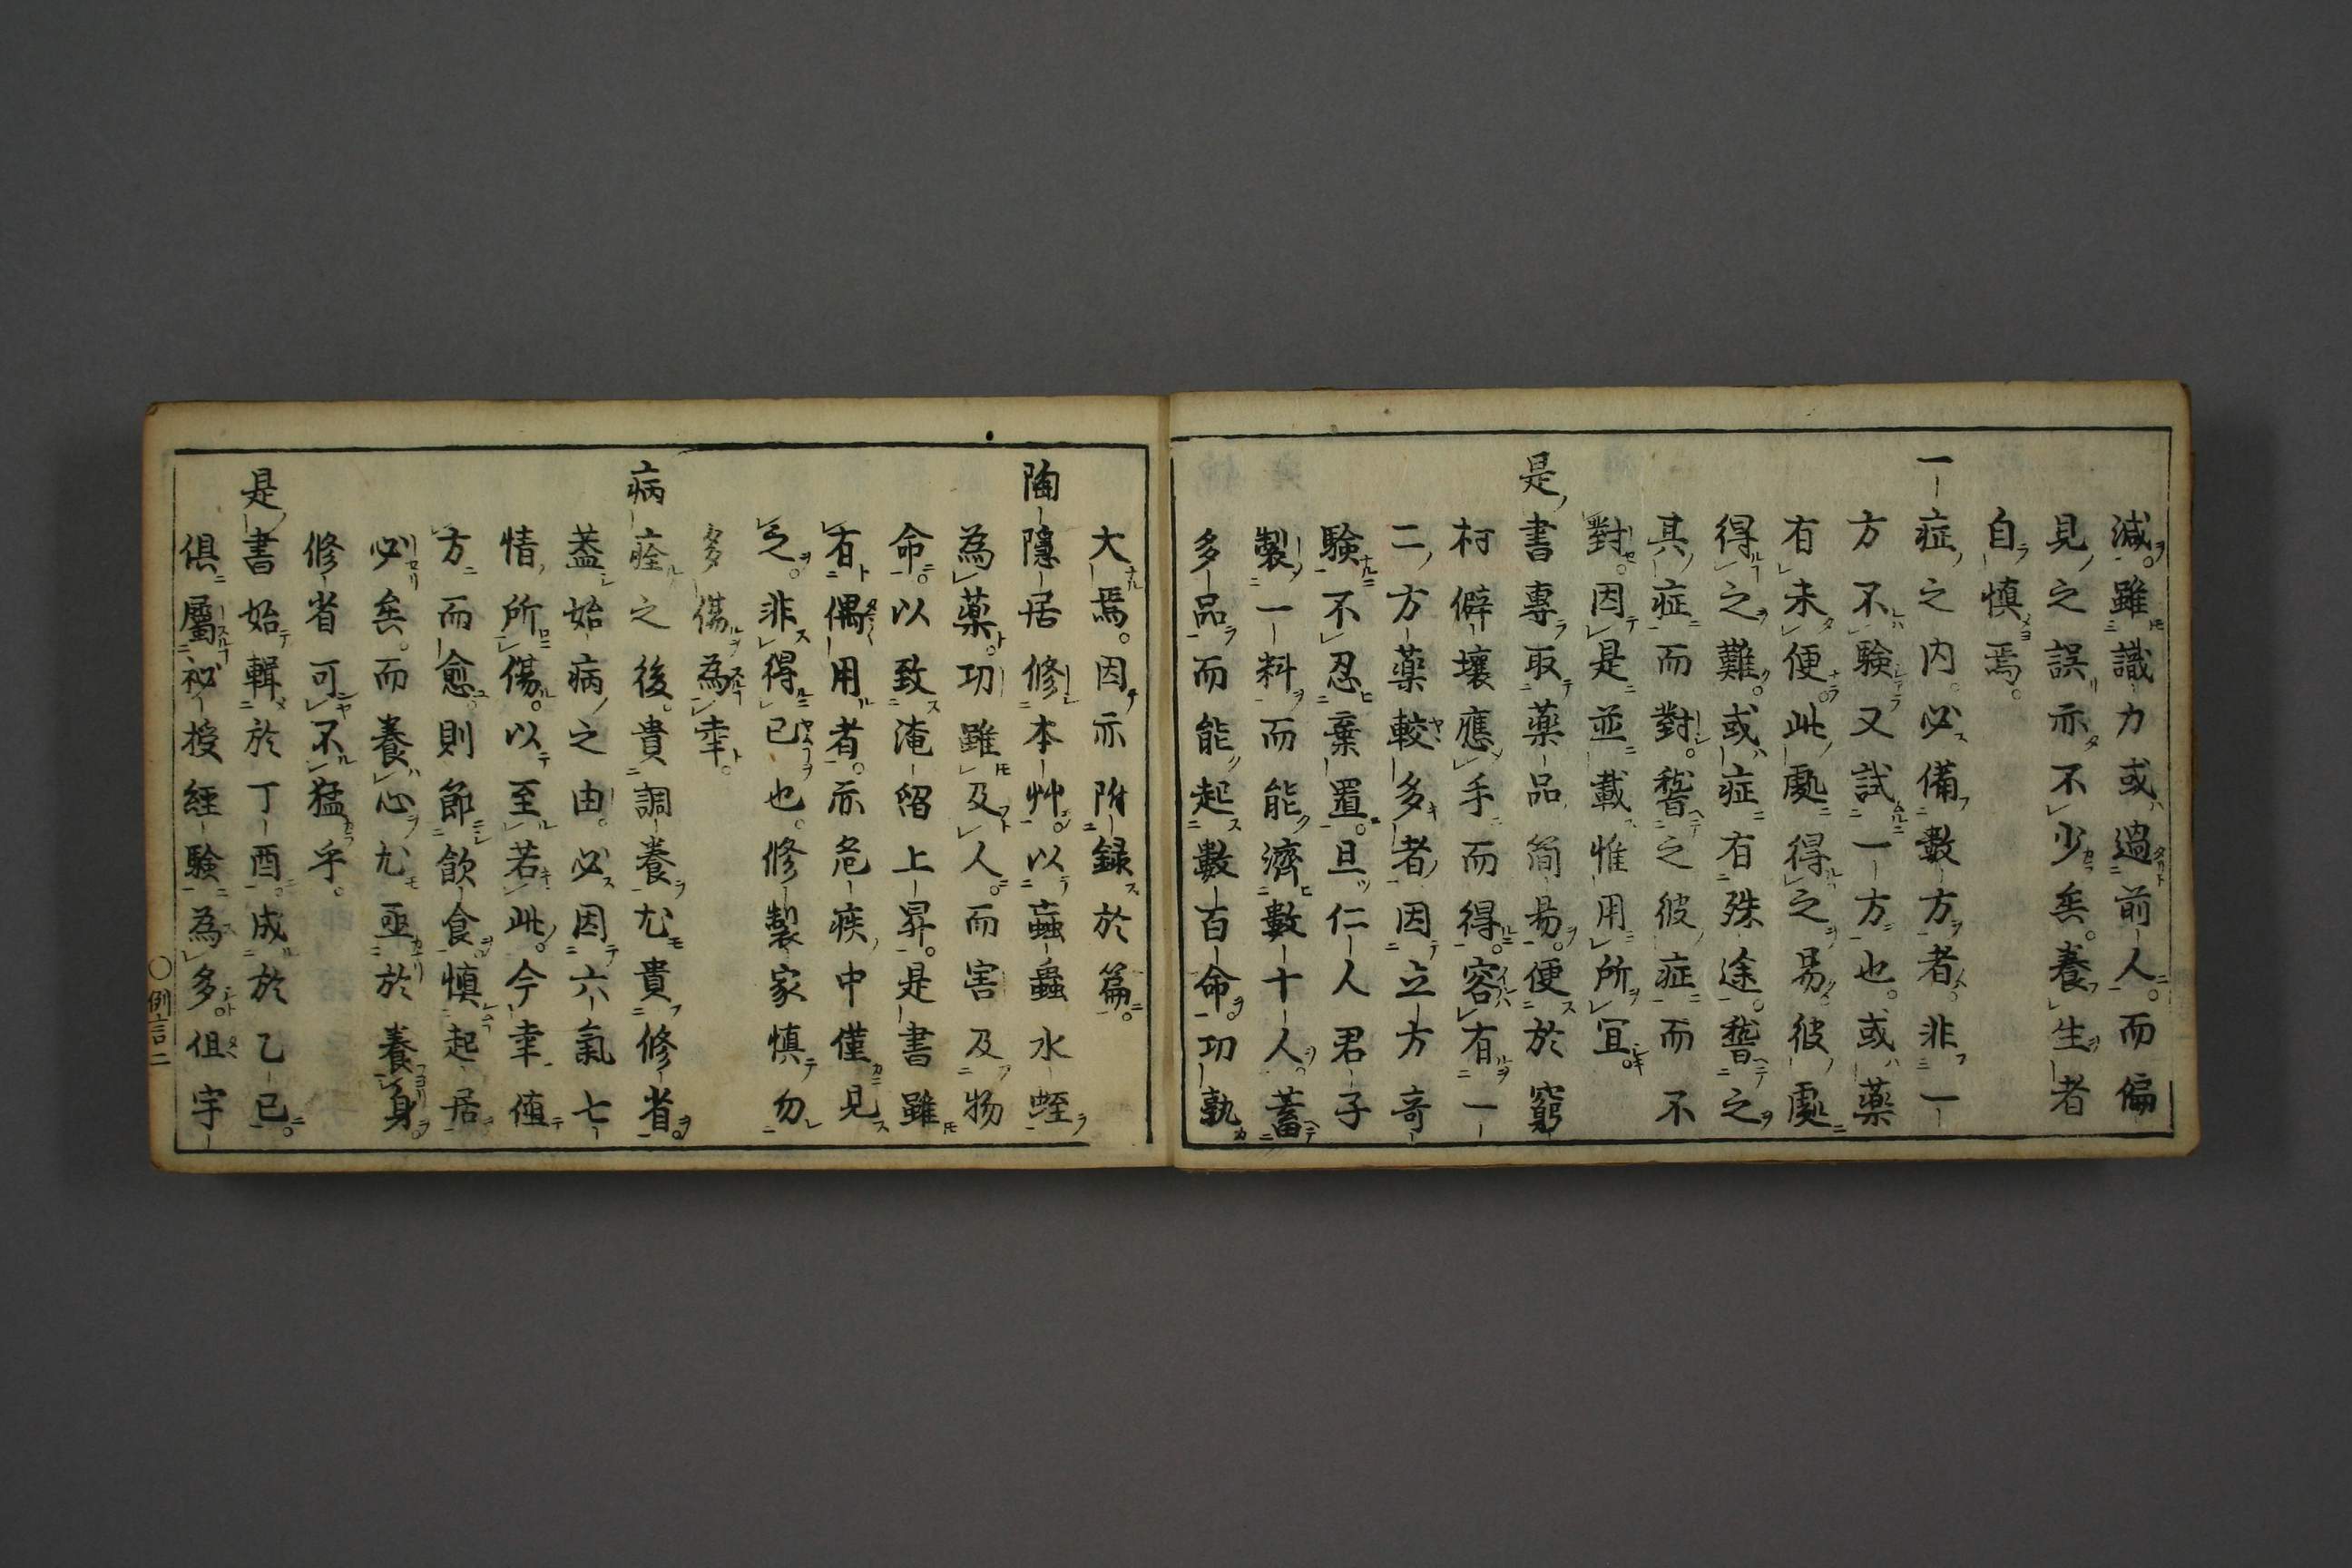 減。雖識力或過前人。而偏
見之誤亦不少矣。養生者
自慎焉。
一症之内。必備數方者。非一
方不驗又試一方也。或藥
有未便此處得之易彼處
得之難。或症有殊途。嘗之
其症而對。嘗之彼症而不
對。因是並載惟用所宜。
是書專取藥品簡易。便於窮
村僻壤應手而得。容有一
二方藥較多者因立方奇
驗不忍棄置。且仁人君子
製一料而能濟數十人。蓄
多品而能起數百命。功孰
大焉。因亦附録於篇。
陶隱居修本艸。以蟲蟲水蛭
為藥。功雖及人。而害及物
命。以致淹留上昇。是書雖
有偶用者。亦危疾中僅見
之。非得已也。修製家慎勿
多傷為幸。
病痊之後。貴調養尤貴修省。
蓋始病之由。必因六氣七
情所傷。以至若此。今幸値
方而愈。則節飲食慎起居
必矣。而養心尤亟於養身。
修省可不猛乎。
是書始輯於丁酉。成於乙巳。
俱屬祕授經驗為多。但字
〇例言二